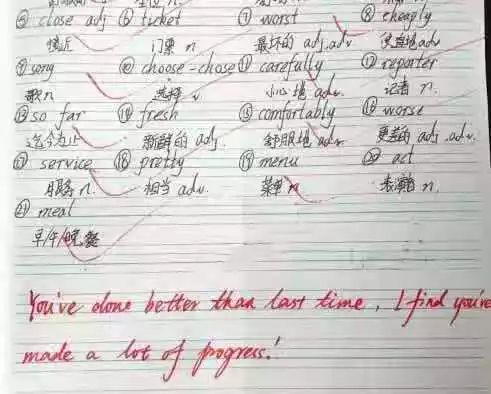 ⑤ close adj ⑥ ticket ⑦ worst ⑧ cheaply
接近 门票 n 最坏的 adj.adv 便宜地 adv
⑨ song ⑩ choose-chose ⑪ carefully ⑫ reporter
歌 n 选择 v 小心地 adv. 记者 n.
⑬ so far ⑭ fresh ⑮ comfortably ⑯ worse
迄今为止 新鲜的 adj. 舒服地 adv 更差的 adj.adv.
⑰ service ⑱ pretty ⑲ menu ⑳ act
服务 n. 相当 adv. 菜单 n 表演 n.
㉑ meal
早/午/晚餐
You've done better than last time, I find you've
made a lot of progress!